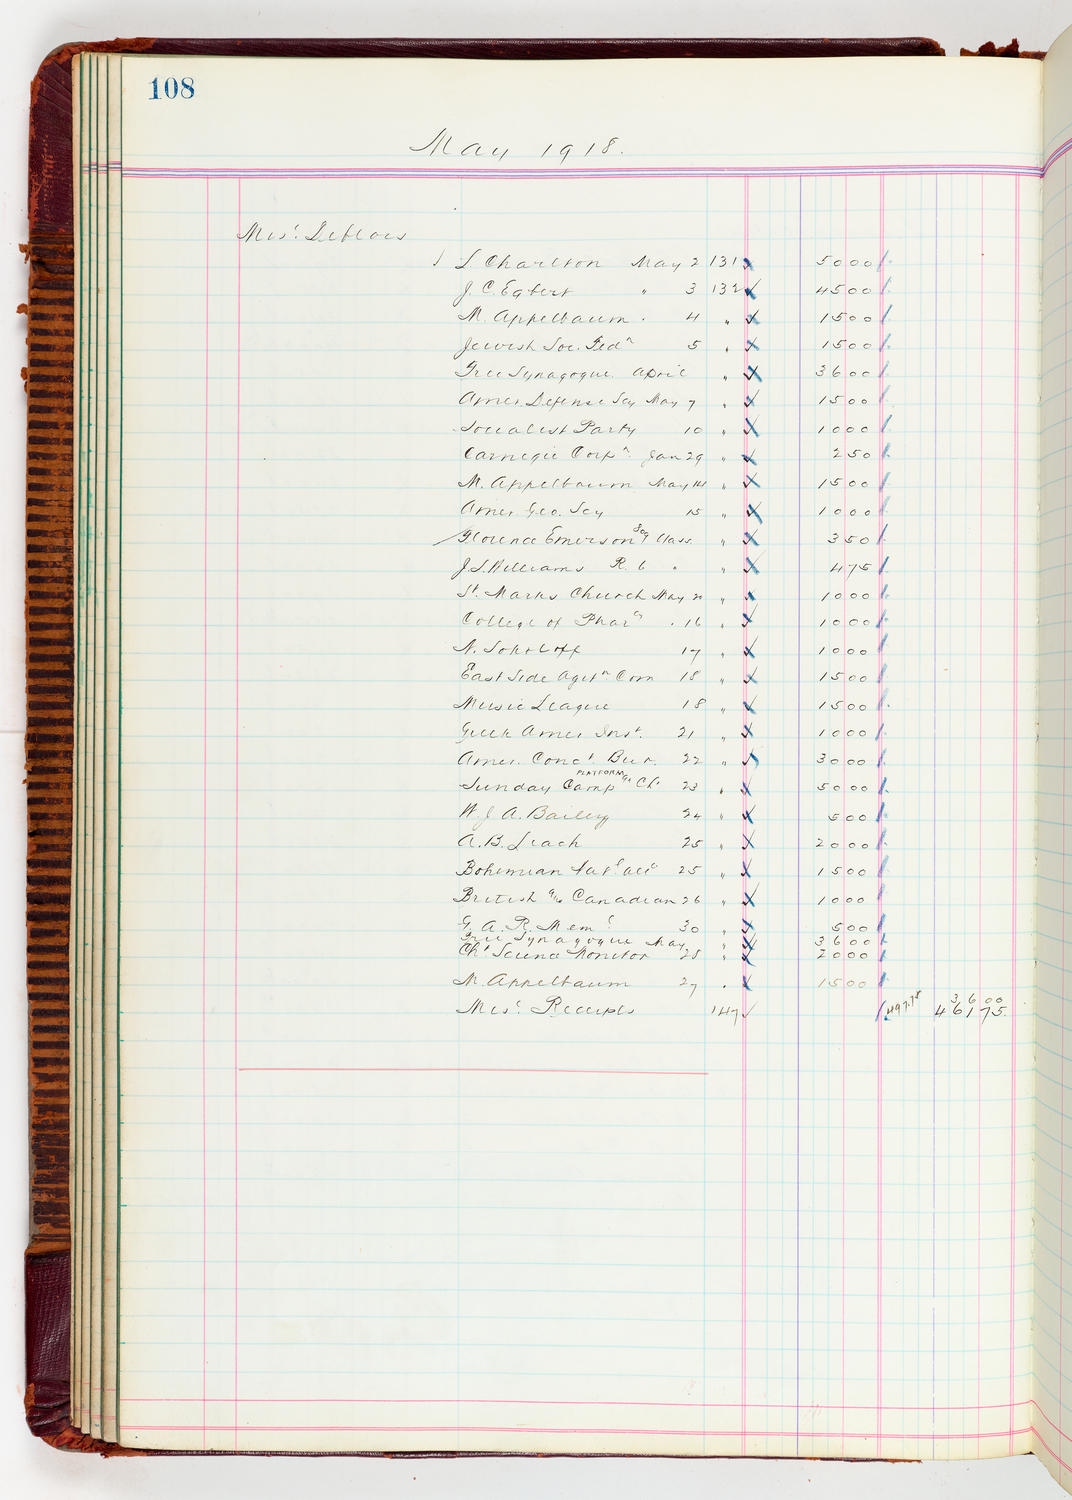 108
May 1918.
Misc. Debtors
L Charlton May 2 131 5000
J. C. Egbert " 3 132 4500
M. Appelbaum 4 " 1500
Jewish Soc. Fedn 5 " 1500
Free Synagogue April " 3600
Amer. Defense Scy May 7 " 1500
Socialist Party 10 " 1000
Carnegie Corpn Jan 29 " 250
M. Appelbaum May 14 " 1500
Amer Geo. Scy 15 " 1000
Florence Emerson Class " 350
J. S. Williams R. 6 " 475
St. Marks Church May 20 " 1000
College of Phary 16 " 1000
N. Sokoloff 17 " 1000
East Side Agitn Com 18 " 1500
Music League 18 " 1500
Greek Amer Inst. 21 " 1000
Amer. Conct. Bur. 22 " 3000
PLATFORM
Sunday Camp Ch 23 " 5000
W. J. A. Bailey 24 " 500
A. B. Leach 25 " 2000
Bohemian Natl 25 " 1500
British & Canadian 26 " 1000
G. A. R. Meml 30 " 500
Free Synagogue May " 3600
Chr Science Monitor 28 " 2000
M. Appelbaum 27 " 1500
3600
Misc. Receipts 147 497.75 46175